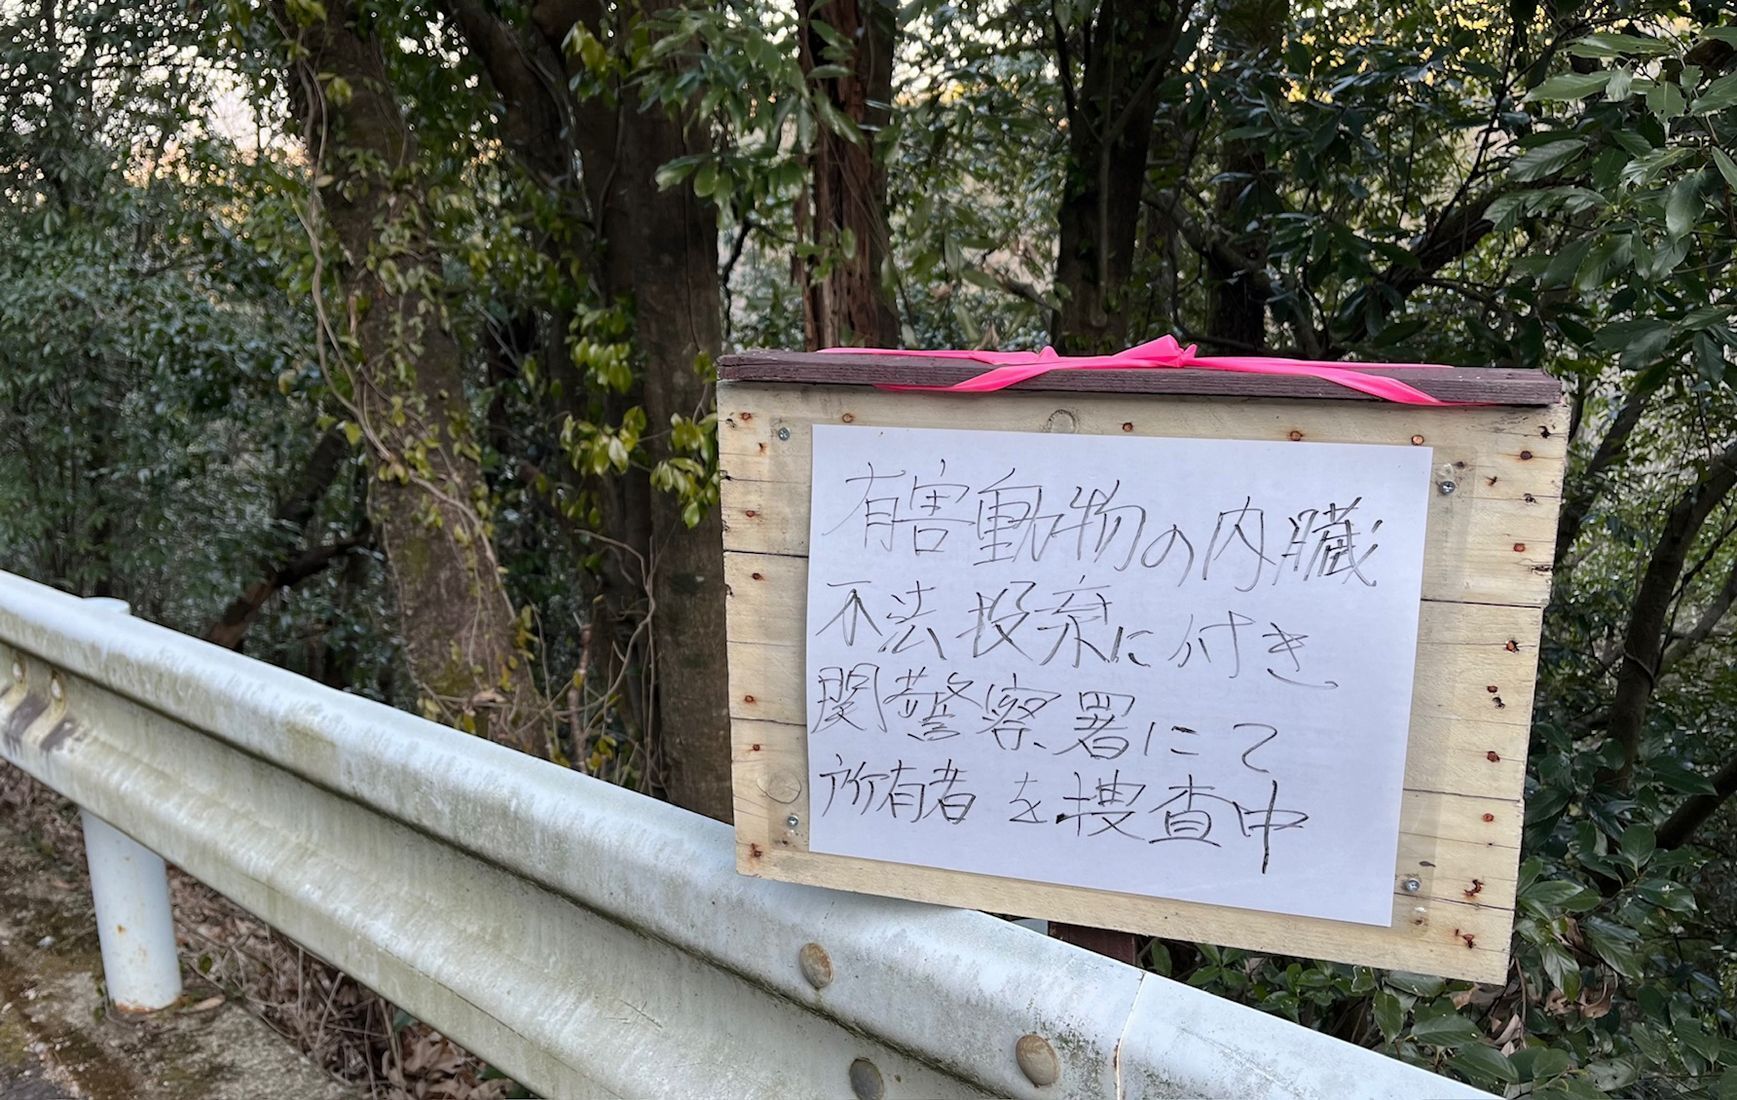 有害動物の内臓
不法投棄に付き
関警察署にて
所有者を捜査中